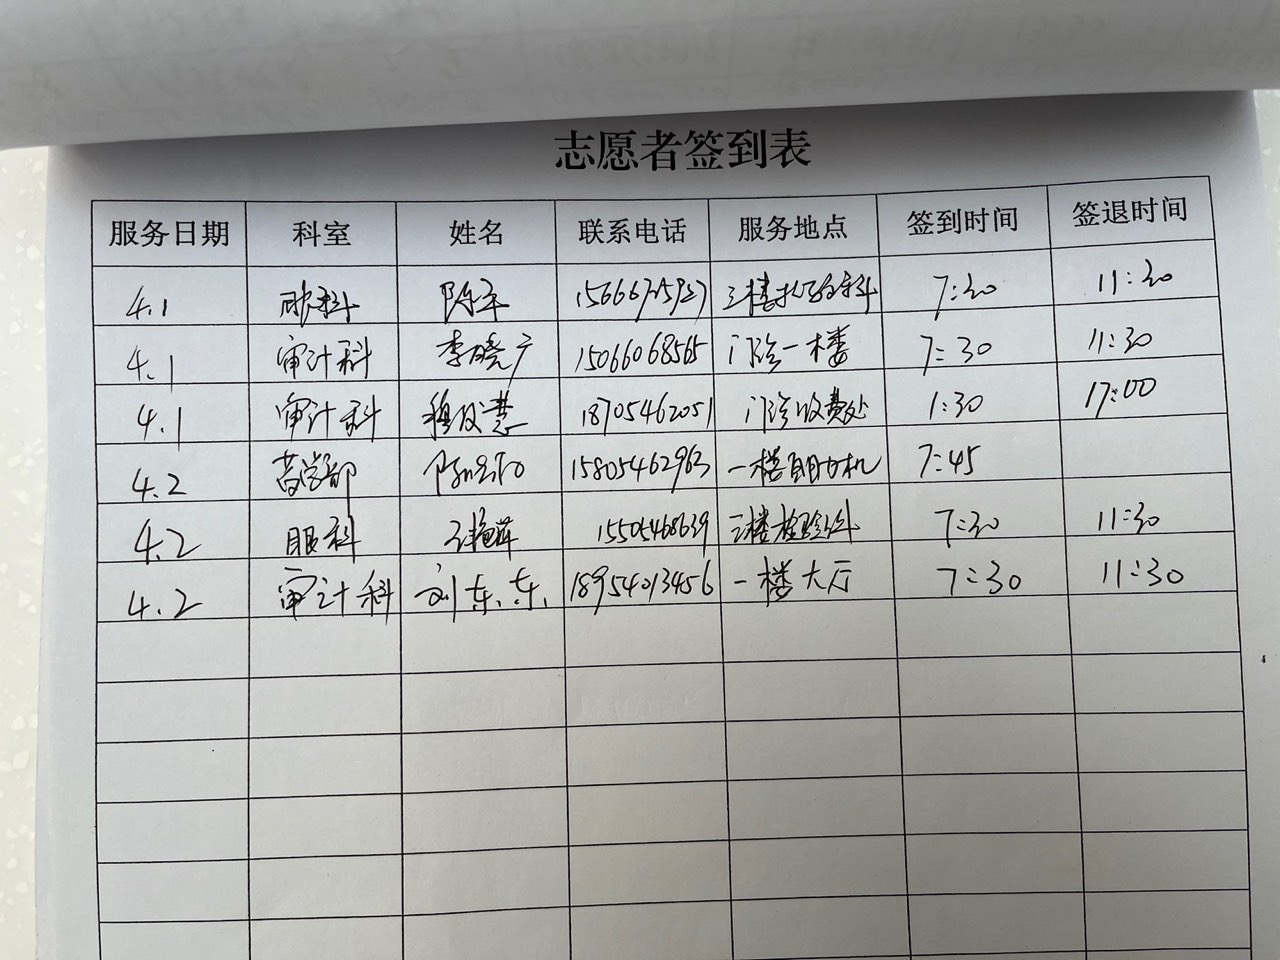 志愿者签到表
服务日期 科室 姓名 联系电话 服务地点 签到时间 签退时间
4.1 眼科 陈军 7:30 11:30
4.1 审计科 李晓广 15066068565 门诊一楼 7:30 11:30
4.1 审计科 18705462051 门诊收费处 1:30 17:00
4.2 药学部 15805462963 一楼自助机 7:45
4.2 眼科 15505468639 三楼检验科 7:30 11:30
4.2 审计科 刘东东 18954013456 一楼大厅 7:30 11:30